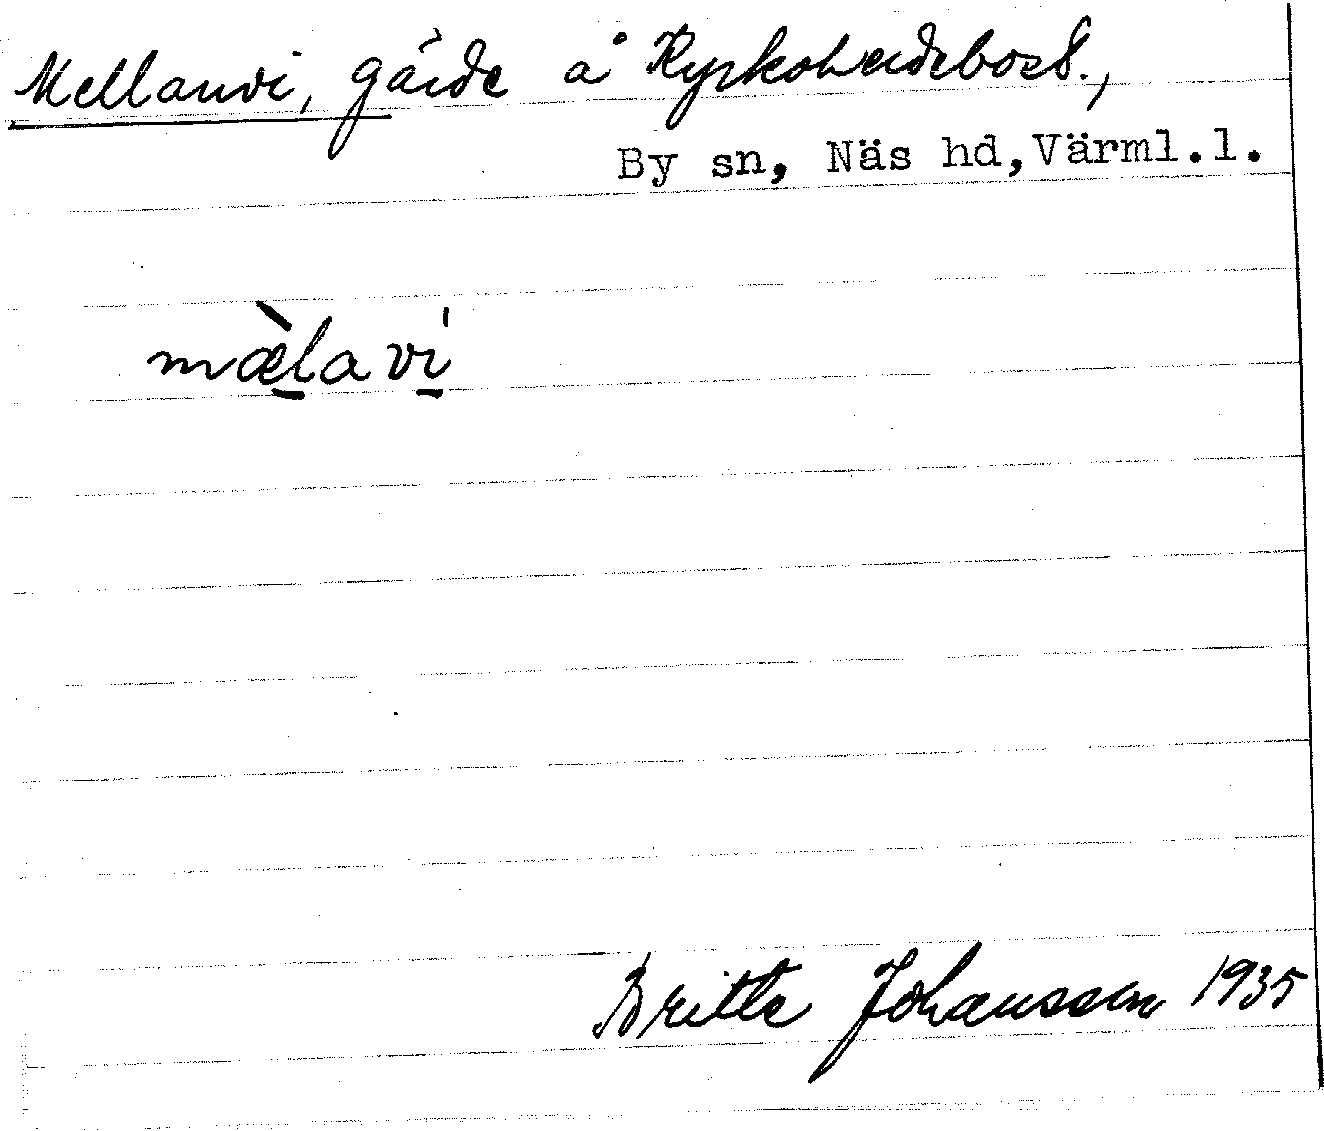 Mellanvi, gärde å Kyrkoherdebost.,
By sn, Näs hd, Värml.l.
mæ̀lavi
Britte Johansson 1935